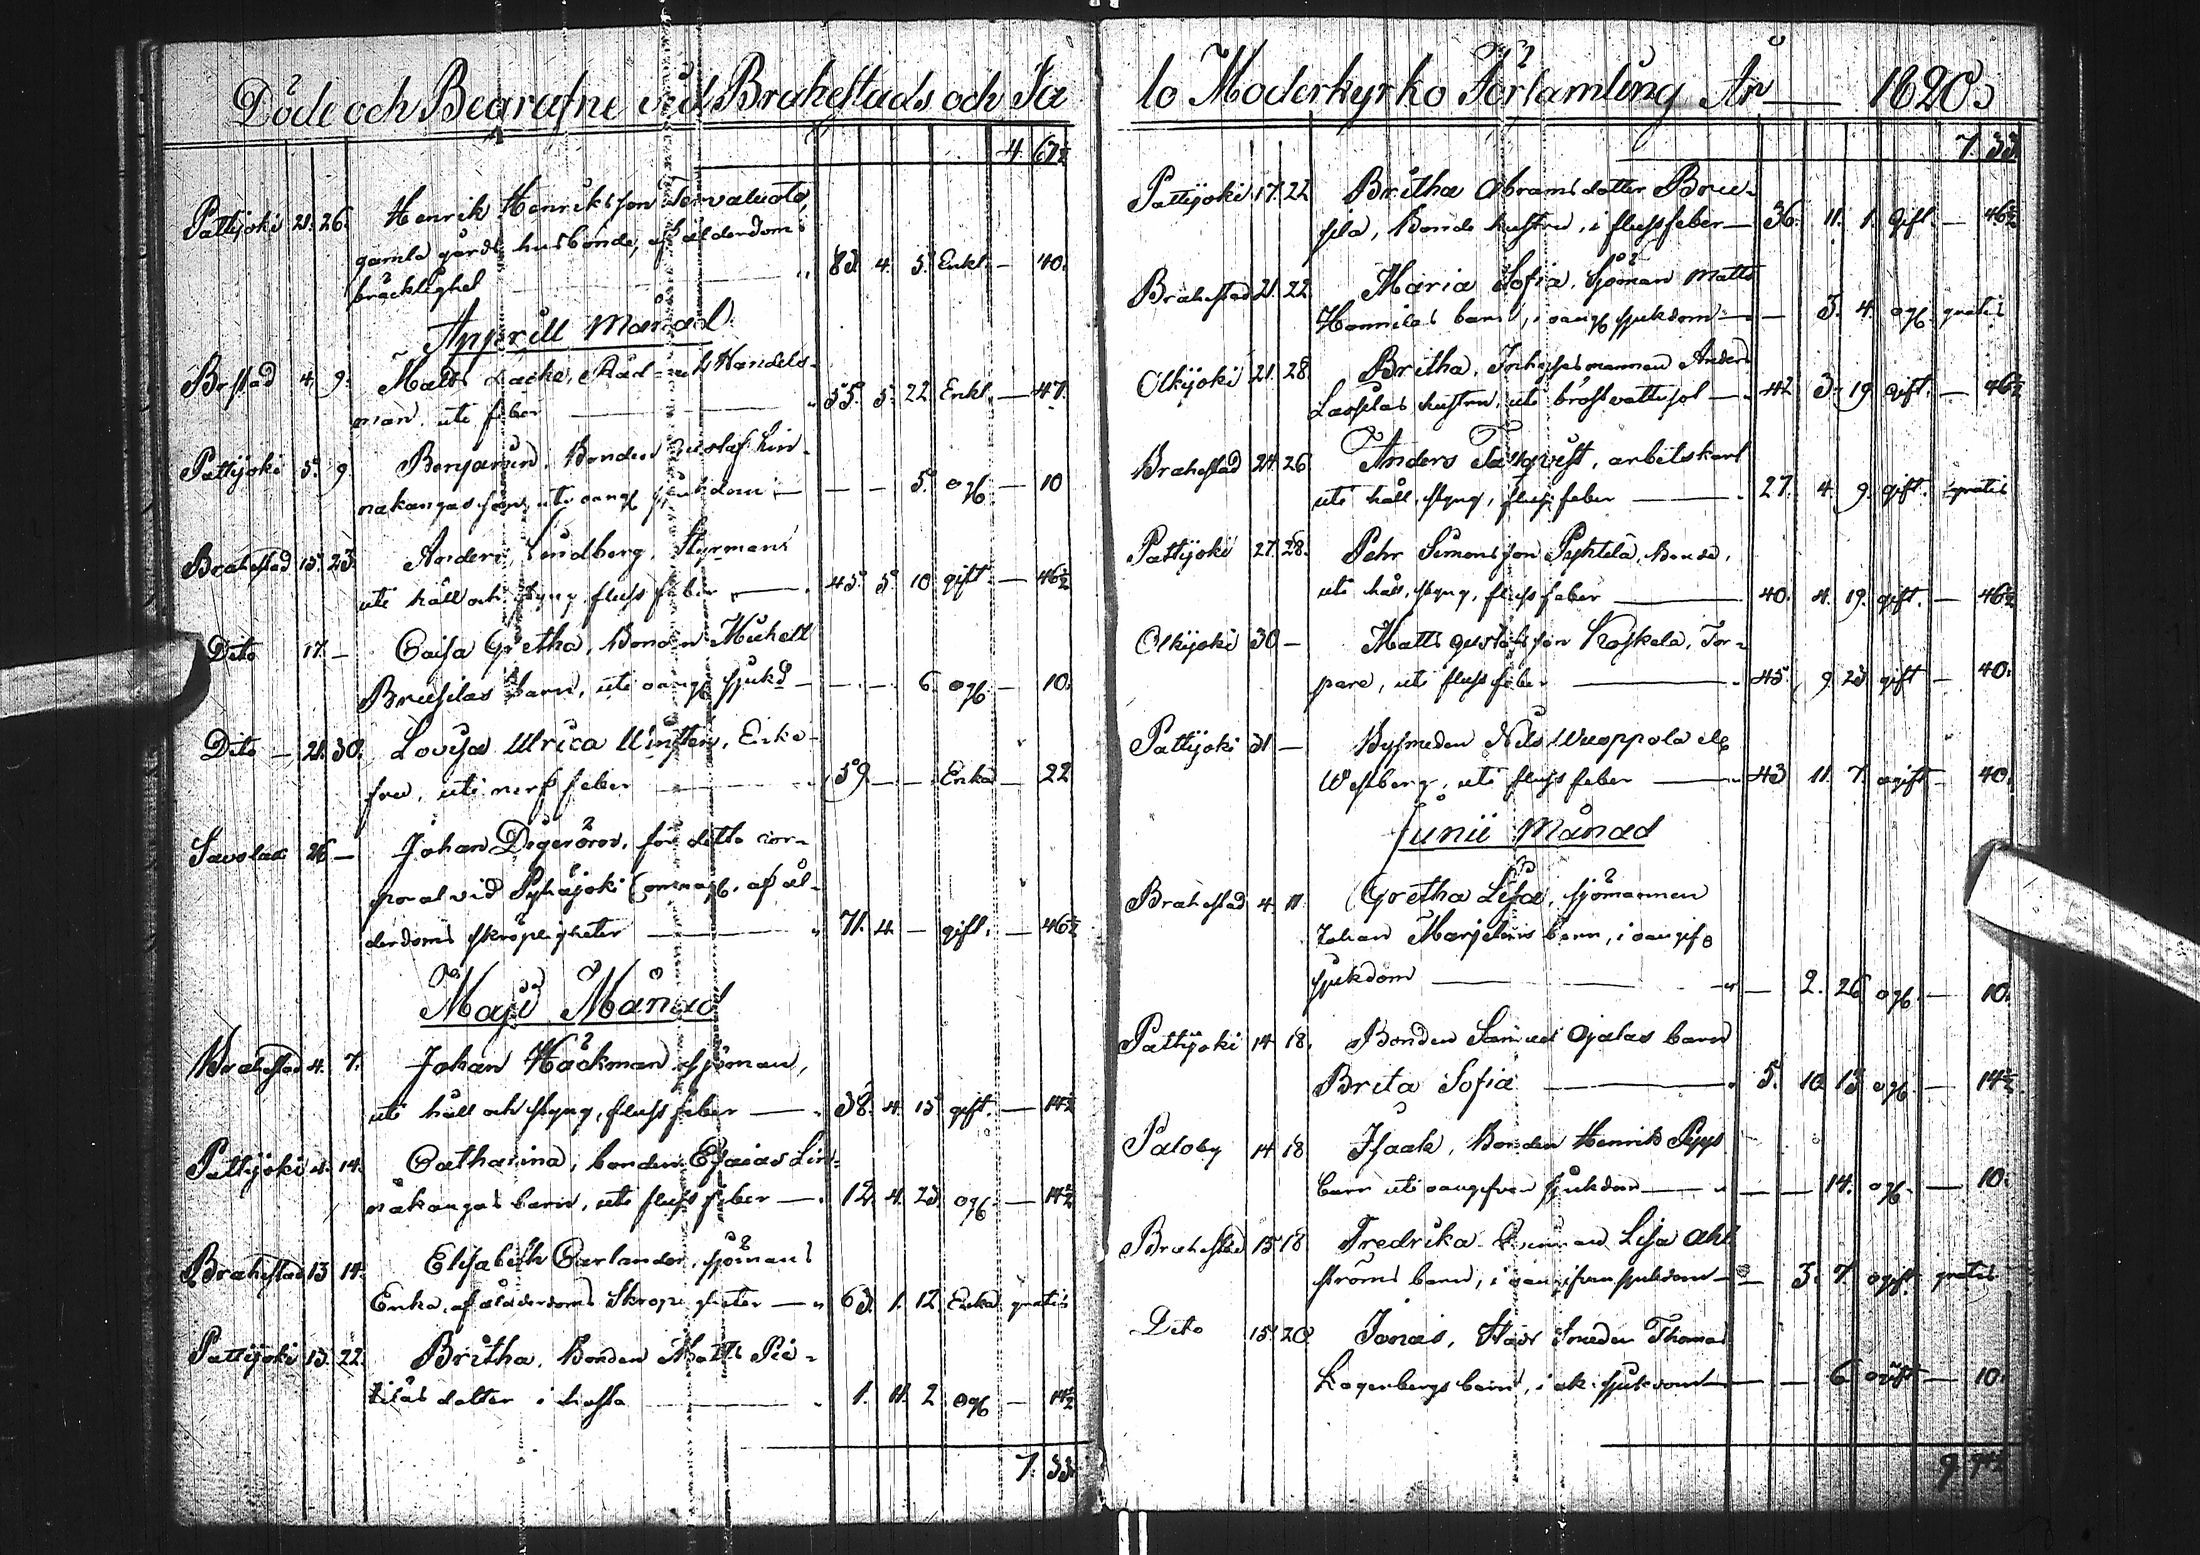 Döde och Begrafne vid Brahestads och Sa
4. 67½
Pattijoki 21. 26. Henrik Henriksson Tervaluoto,
gamla gårds husbonde, af ålderdoms
bräcklighet 83. 4. 5. Enkl. — 40.
Appril Månad
Brstad 4. 9. Matts Råd- och Handels-
man, uti feber 55. 5. 22 Enkl. — 47.
Pattijoki 5. 9 Benjamin, Bonden Gustaf Lin-
nakangas son, uti oangf sjukdom — — — 5. ogf — 10
Brahestad 15. 23. Anders Sundberg, Styrman
uti håll och styng, fluss feber 45. 5. 10 gift. — 46½
Dito 17. — Caisa Gretha, Bonden Michell
Brusilas barn, uti oangf sjukd — — — 6. ogf. — 10.
Dito — 21. 30. Lovisa Ulrica Enke-
fru, uti nerf feber 59 — — Enka — 22
Savolax 26 — Johan för detta cor-
poral vid Pyhäjoki Compagf. af ål-
derdoms skröpligheter 71. 4. — gift. — 46½
Maji Månad
Brahestad 4. 7. Johan Häckman, sjöman,
uti håll och styng, fluss feber — 38. 4. 15 gift. — 14½
Pattijoki 4. 14. Catharina, bonden Esaias Lin-
nakangas barn, uti fluss feber — 12. 4. 23. ogf. — 14½
Brahestad 13 14. Elisabeth Carlander, sjömans
Enka, af ålderdoms Skröpligheter — 63. 1. 12. Enka gratis
Pattijoki 13. 22. Britha, Bonden Matts Pie-
tiläs dotter i hosta 1. 11. 2. Ogf — 14½
7. 33.
lo Moderkyrko Församling År — 1820.
7. 33.
Pattijoki 17. 22. Britha Abrams dotter Bru-
sila, Bonde hustru, i fluss feber — 36. 11. 1. Gift. — 46½
Brahestad 21. 22 Maria Sofia, Sjöman Matts
barn, i oangf sjukdom — — 3. 4. ogf. gratis
Olkijoki 21. 28 Britha, Inhysesmannen Anders
Lassilas hustru, uti bröst vattusot — 42 3. 19. gift. — 46½
Brahestad 24. 26 Anders Fallqvist, arbetskarl
uti håll, styng, fluss feber 27. 4. 9. gift. gratis
Pattijoki 27 28. Pehr Simonsson Pyhtilä, Bonde,
uti håll, styng, fluss feber 40. 4. 19. gift. — 46½
Olkijoki 30 — Matts Gustafsson Koskela, Tor-
pare, uti fluss feber 45. 9 23 gift — 40.
Pattijoki 31 — Bysmeden Nils Wuoppola
Westberg, uti fluss feber 43 11. 7. ogift — 40.
Junii Månad
Brahestad 4. 11 Gretha Lisa, sjömannen
Johan Marjelins barn, i oangif.
sjukdom — 2. 26 ogf. — 10.
Pattijoki 14 18. Bonden Samuel Ojalas barn
Brita Sofia 5. 10 13 ogf. — 14½
Paloby 14 18. Isaak, Bonden Henrik Pyys
barn uti oangifven sjukdom — — — 14. ogf. — 10.
Brahestad 15 18 Fredrika Lisa Ahl
ströms barn, i oangifven sjukdom — — 3. 7. ogft. gratis
Dito 15. 20. Jonas, Stads Smeden Thomas
Lagerbergs barn, i ok. sjukdom — — 6 ogift — 10.